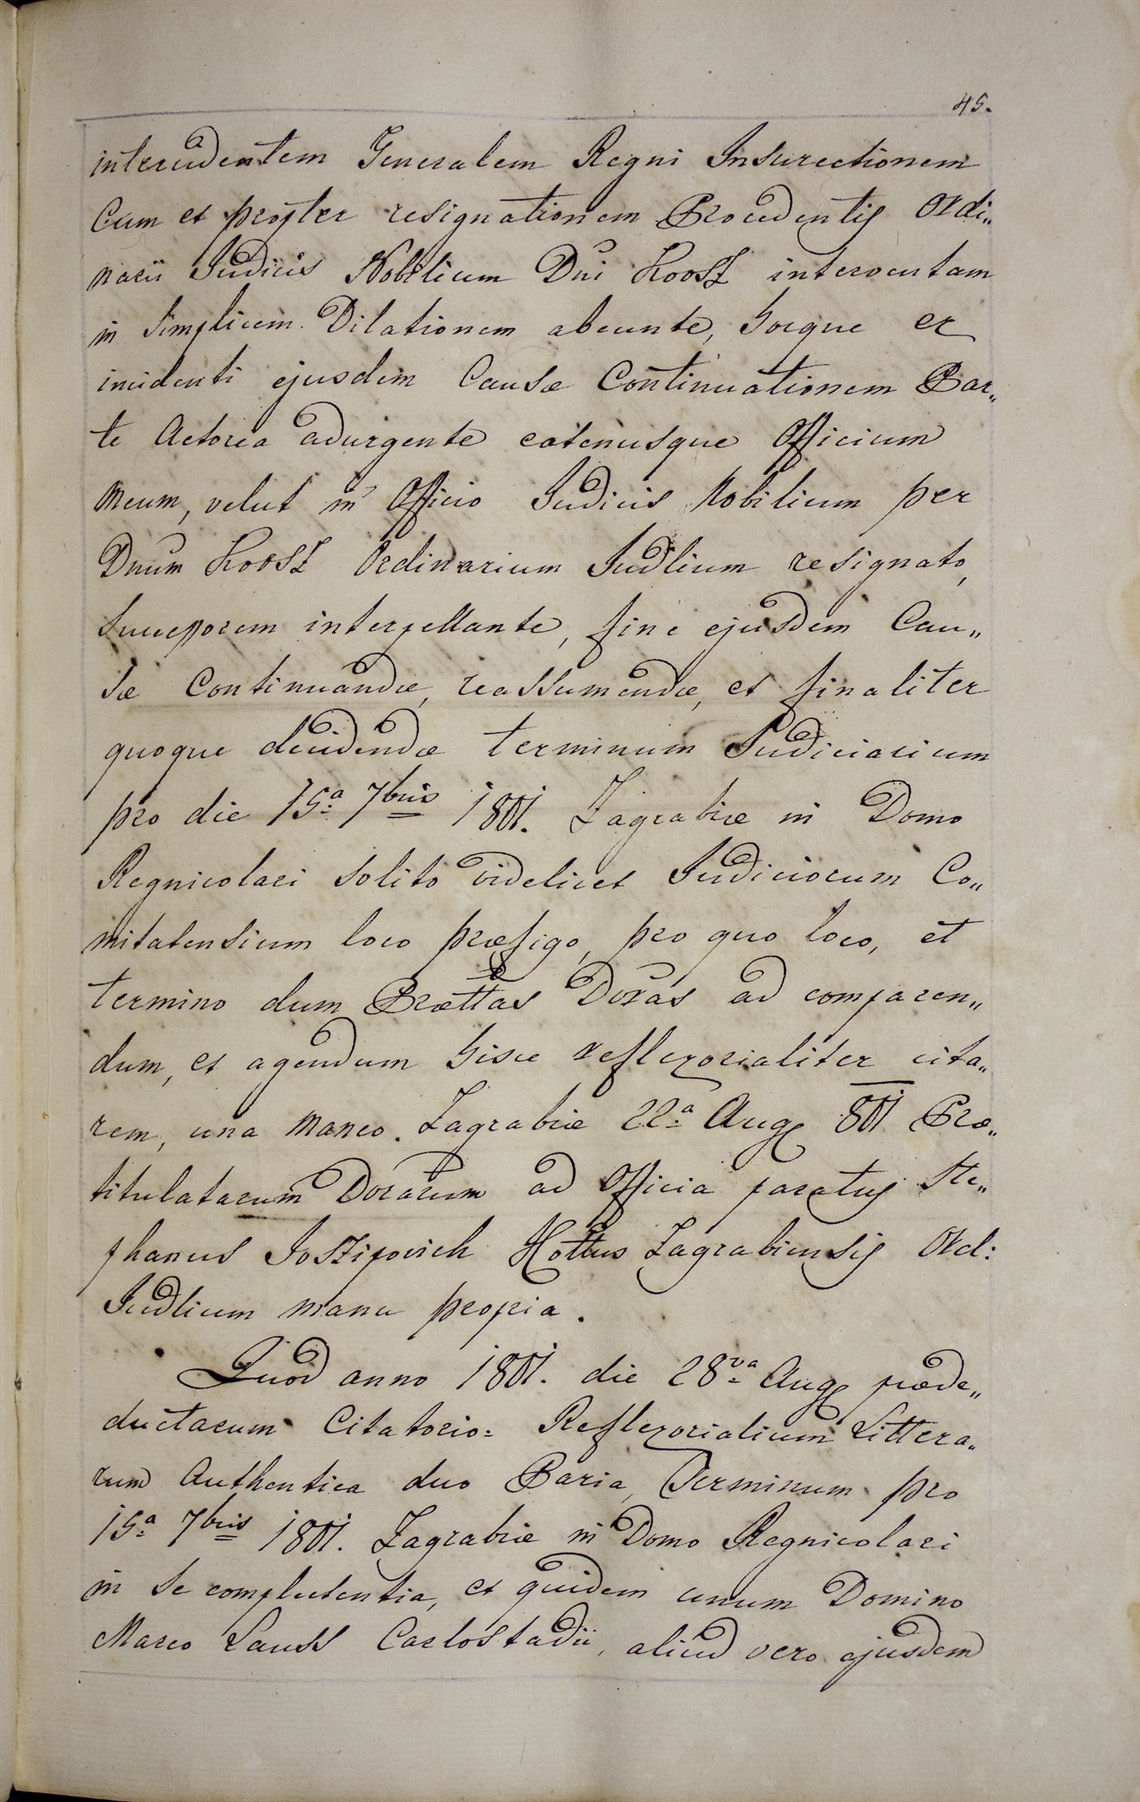 45.
intercedentem Generalem Regni Insurectionem
Cum et propter resignationem Procedentis Ordi„
narii Judicis Nobilium Dni Koosz interventam
in simplicem Dilationem abeunte, hocque ex
incidenti ejusdem Causæ Continuationem Par„
te Actorea adurgente eatenusque Officium
meum, velut in Officio Judicis Nobilium per
Dnum Koosz Ordinarium Judlium resignato,
Successorem interpellante, fine ejusdem Cau„
sæ Continuandæ, reassumendæ, et finaliter
quoque decidendæ terminum Judiciarium
pro die 15a 7bris 1801. Zagrabiæ in Domo
Regnicolari solito videlicet Judiciorum Co„
mitatensium loco præfigo, pro quo loco, et
termino dum Prættas Doxas ad comparen„
dum, et agendum hisce reflexorialiter cita„
rem, una maneo. Zagrabiæ 22a Aug 801 Præ„
titulatarum Dorarum ad Officia paratus Ste„
phanus Joszipovich Ilottus Zagrabiensis Ord:
Judlium manu propria.
Quod anno 1801. die 28va Aug præde„
ductarum Citatorio= Reflexorialium Littera„
rum Authentica duo Paria, Terminum pro
15a 7bris 1801. Zagrabiæ in Domo Regnicolari
in se complectentia, et quidem unum Domino
Marco Lauss Carlostadii, aliud vero ejusdem